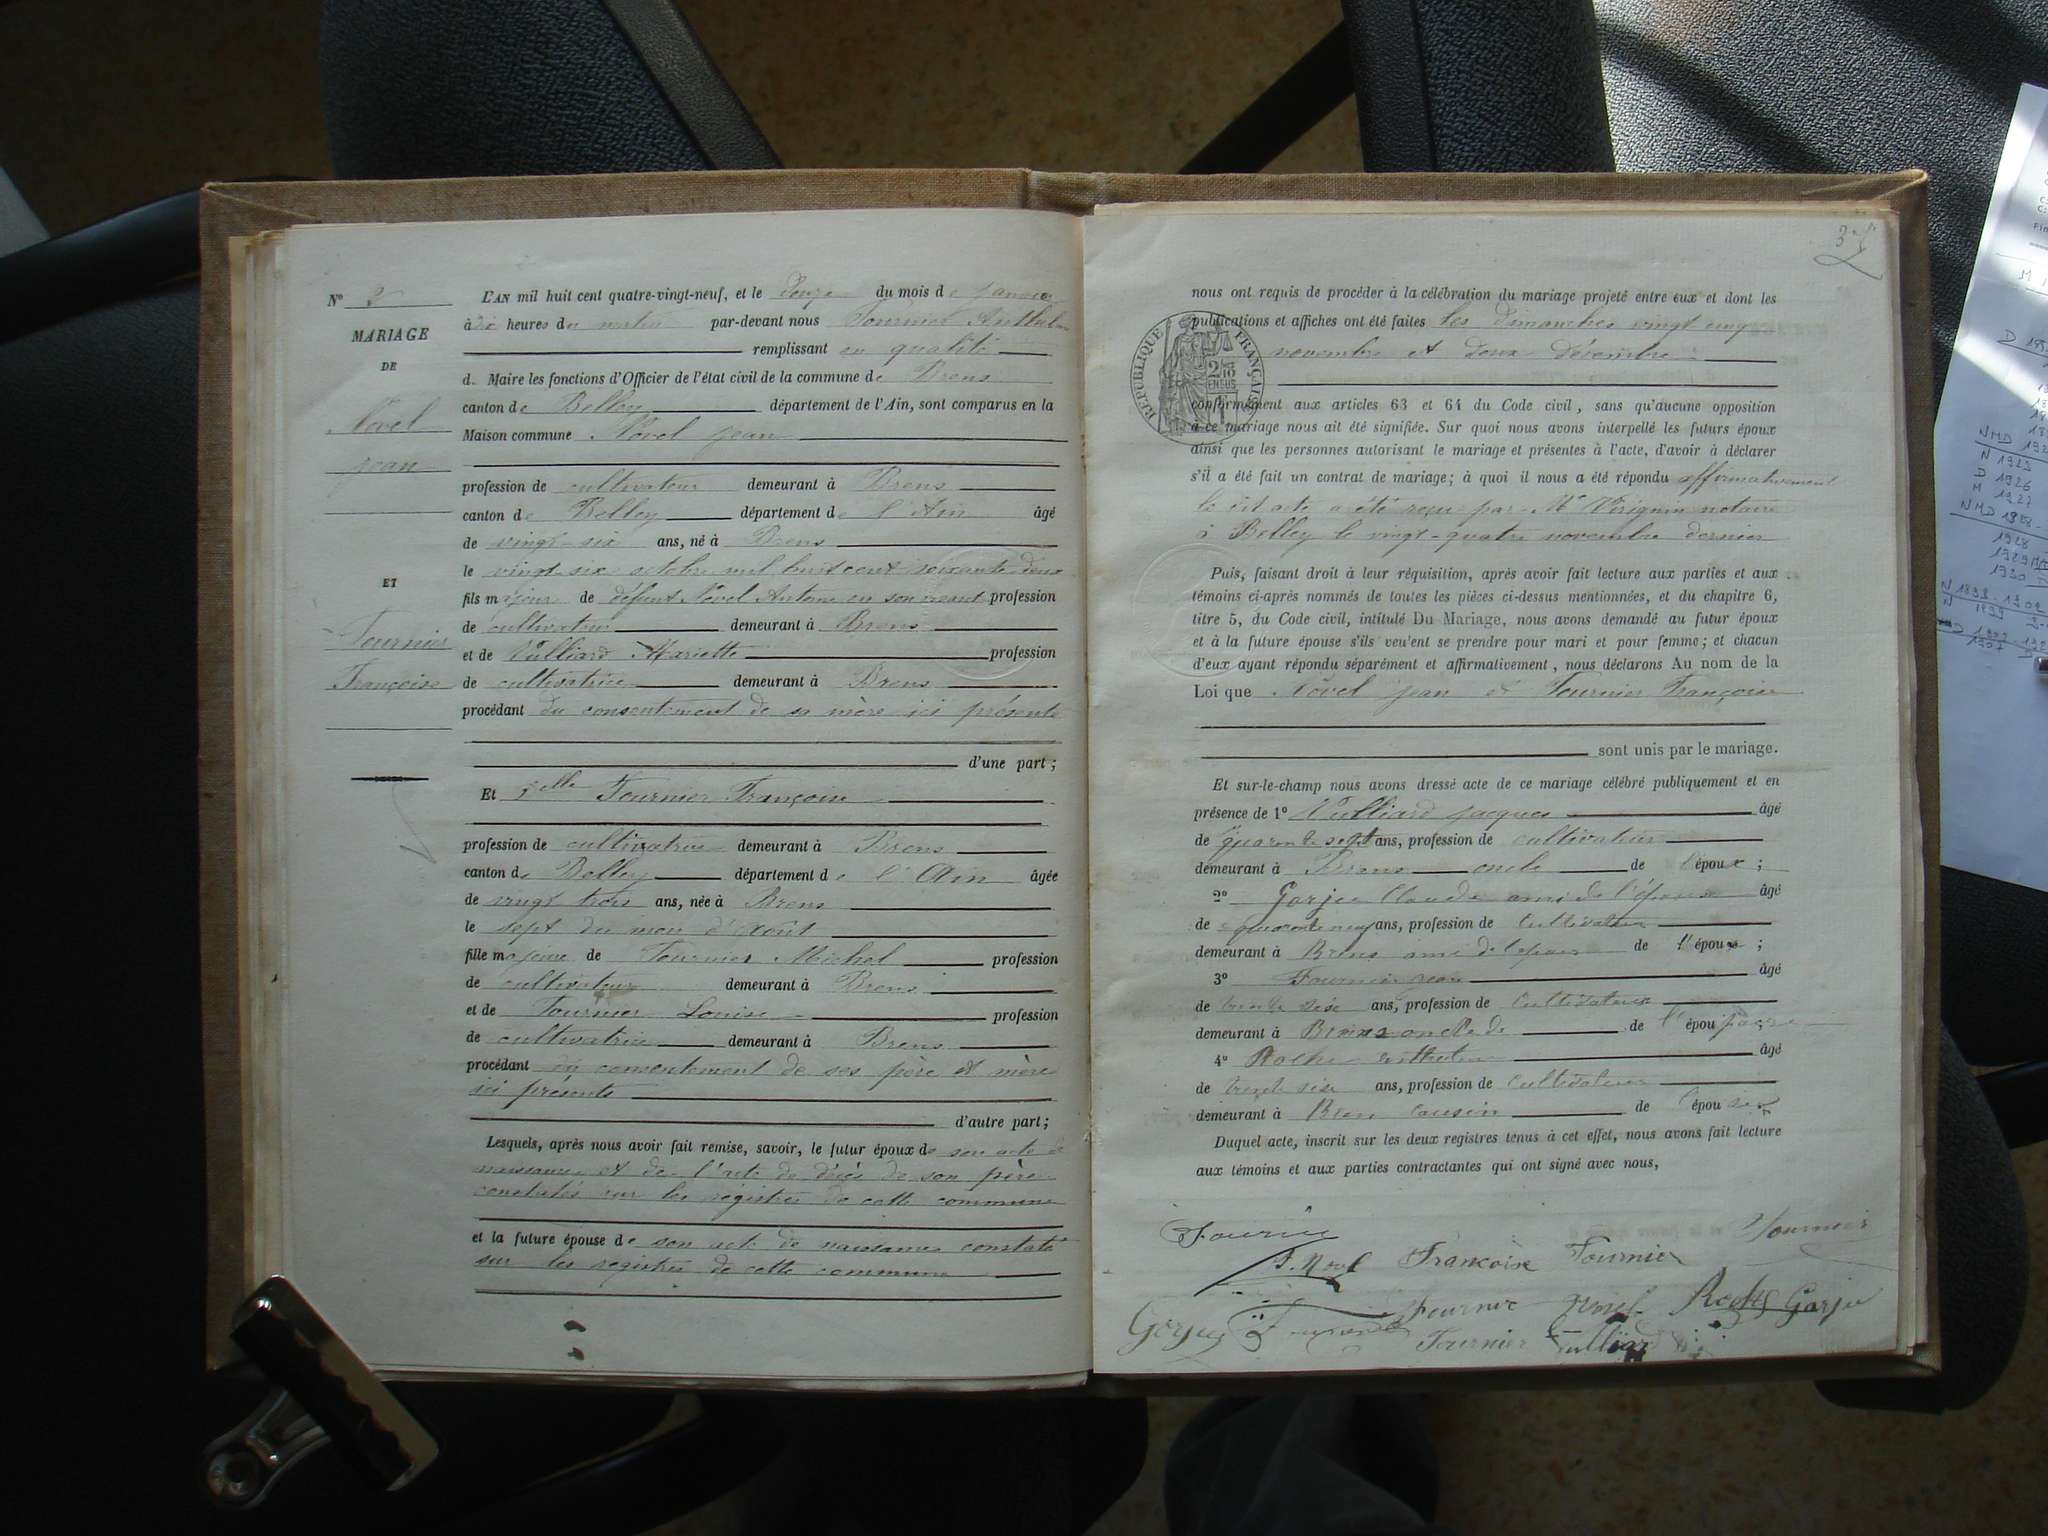 N° 3
MARIAGE
DE
Novel
Jean
ET
Fournier
Françoise
L'AN mil huit cent quatre-vingt-neuf, et le douze du mois de janvier
à dix heures du matin par-devant nous Fournier Anthelme
remplissant en qualité
de Maire les fonctions d'Officier de l'état civil de la commune de Brens
canton de Belley département de l'Ain, sont comparus en la
Maison commune Novel Jean
profession de cultivateur demeurant à Brens
canton de Belley département de l'Ain âgé
de vingt-six ans, né à Brens
le vingt six octobre mil huit cent soixante deux
fils majeur de défunt Novel Antoine en son vivant profession
de cultivateur demeurant à Brens
et de Vulliard Mariette profession
de cultivatrice demeurant à Brens
procédant du consentement de sa mère ici présente
d'une part;
Et Delle Fournier Françoise
profession de cultivatrice demeurant à Brens
canton de Belley département de l'Ain âgée
de vingt trois ans, née à Brens
le sept du mois d'Août
fille majeure de Fournier Michel profession
de cultivateur demeurant à Brens
et de Fournier Louise profession
de cultivatrice demeurant à Brens
procédant du consentement de ses père et mère
ici présents
d'autre part;
Lesquels, après nous avoir fait remise, savoir, le futur époux de son acte de
naissance et de l'acte de décès de son père
constatés sur les registres de cette commune
et la future épouse de son acte de naissance constaté
sur les registres de cette commune
nous ont requis de procéder à la célébration du mariage projeté entre eux et dont les
publications et affiches ont été faites les dimanches vingt cinq
novembre et deux décembre
RÉPUBLIQUE FRANÇAISE
conformément aux articles 63 et 64 du Code civil, sans qu'aucune opposition
à ce mariage nous ait été signifiée. Sur quoi nous avons interpellé les futurs époux
ainsi que les personnes autorisant le mariage et présentes à l'acte, d'avoir à déclarer
s'il a été fait un contrat de mariage; à quoi il nous a été répondu affirmativement
le dit acte a été reçu par Me notaire
à Belley le vingt-quatre novembre dernier
Puis, faisant droit à leur réquisition, après avoir fait lecture aux parties et aux
témoins ci-après nommés de toutes les pièces ci-dessus mentionnées, et du chapitre 6,
titre 5, du Code civil, intitulé Du Mariage, nous avons demandé au futur époux
et à la future épouse s'ils veulent se prendre pour mari et pour femme; et chacun
d'eux ayant répondu séparément et affirmativement, nous déclarons Au nom de la
Loi que Novel Jean et Fournier Françoise
sont unis par le mariage.
Et sur-le-champ nous avons dressé acte de ce mariage célébré publiquement et en
présence de 1° Vulliard Jacques âgé
de quarante sept ans, profession de cultivateur
demeurant à Brens oncle de l'époux;
2° Garjeu Claude ami de l'époux âgé
de ans, profession de cultivateur
demeurant à Brens ami de l'époux de l'époux;
3° Fournier Jean âgé
de trente six ans, profession de Cultivateur
demeurant à Brens oncle de de l'épouse
4° Roche âgé
de trente six ans, profession de Cultivateur
demeurant à Bren Cousin de l'épouse
Duquel acte, inscrit sur les deux registres tenus à cet effet, nous avons fait lecture
aux témoins et aux parties contractantes qui ont signé avec nous,
J. Novel Françoise Fournier Fournier
Fournier Novel Roche Garjeu
Fournier Vulliard
NMD
N 1923
D 1926
M 1927
1928